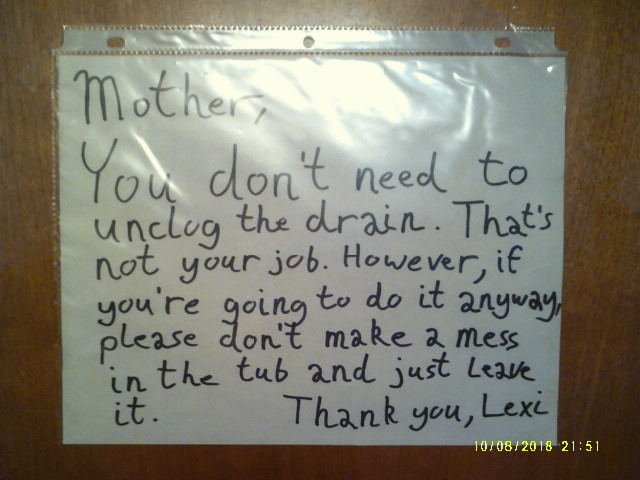 Mother,
You don't need to
unclog the drain. That's
not your job. However, if
you're going to do it anyway,
please don't make a mess
in the tub and just leave
it. Thank you, Lexi
10/08/2018 21:51